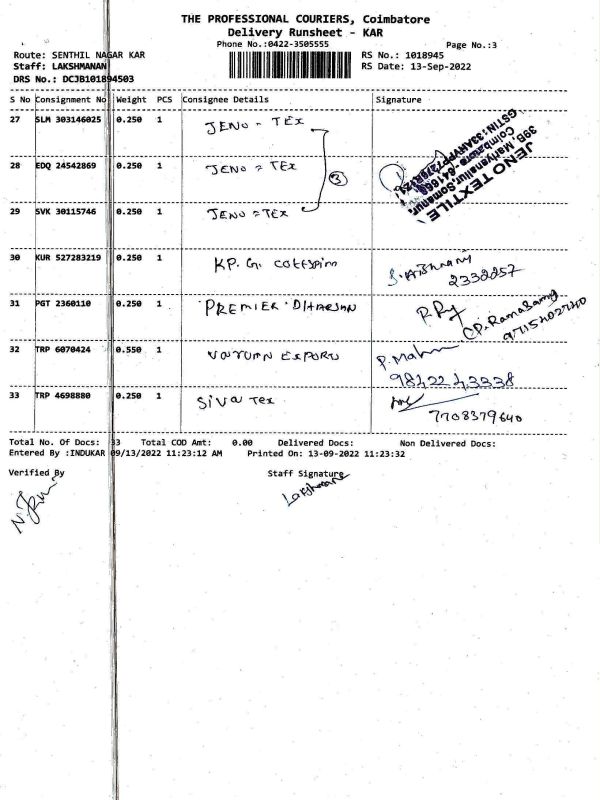 THE PROFESSIONAL COURIERS, Coimbatore
Delivery Runsheet - KAR
Phone No.:0422-3505555
Page No.:3
Route: SENTHIL NAGAR KAR
RS No.: 1018945
Staff: LAKSHMANAN
RS Date: 13-Sep-2022
DRS No.: DCJB101894503
S No Consignment No Weight PCS Consignee Details Signature
27 SLM 303146025 0.250 1 JENO - TEX
28 EDQ 24542869 0.250 1 JENO = TEX
3
29 SVK 30115746 0.250 1 JENO = TEX
JENO TEXTILE
39B, Mariyanallur, Somanur,
Coimbatore - 641668
30 KUR 527283219 0.250 1 K.P.G.
31 PGT 2360110 0.250 1 PREMIER
CP. Ramasamy
9715402740
32 TRP 6070424 0.550 1
9842243338
33 TRP 4698880 0.250 1 Siva Tex
7708379640
Total No. Of Docs: 33 Total COD Amt: 0.00 Delivered Docs: Non Delivered Docs:
Entered By :INDUKAR 09/13/2022 11:23:12 AM Printed On: 13-09-2022 11:23:32
Verified By Staff Signature